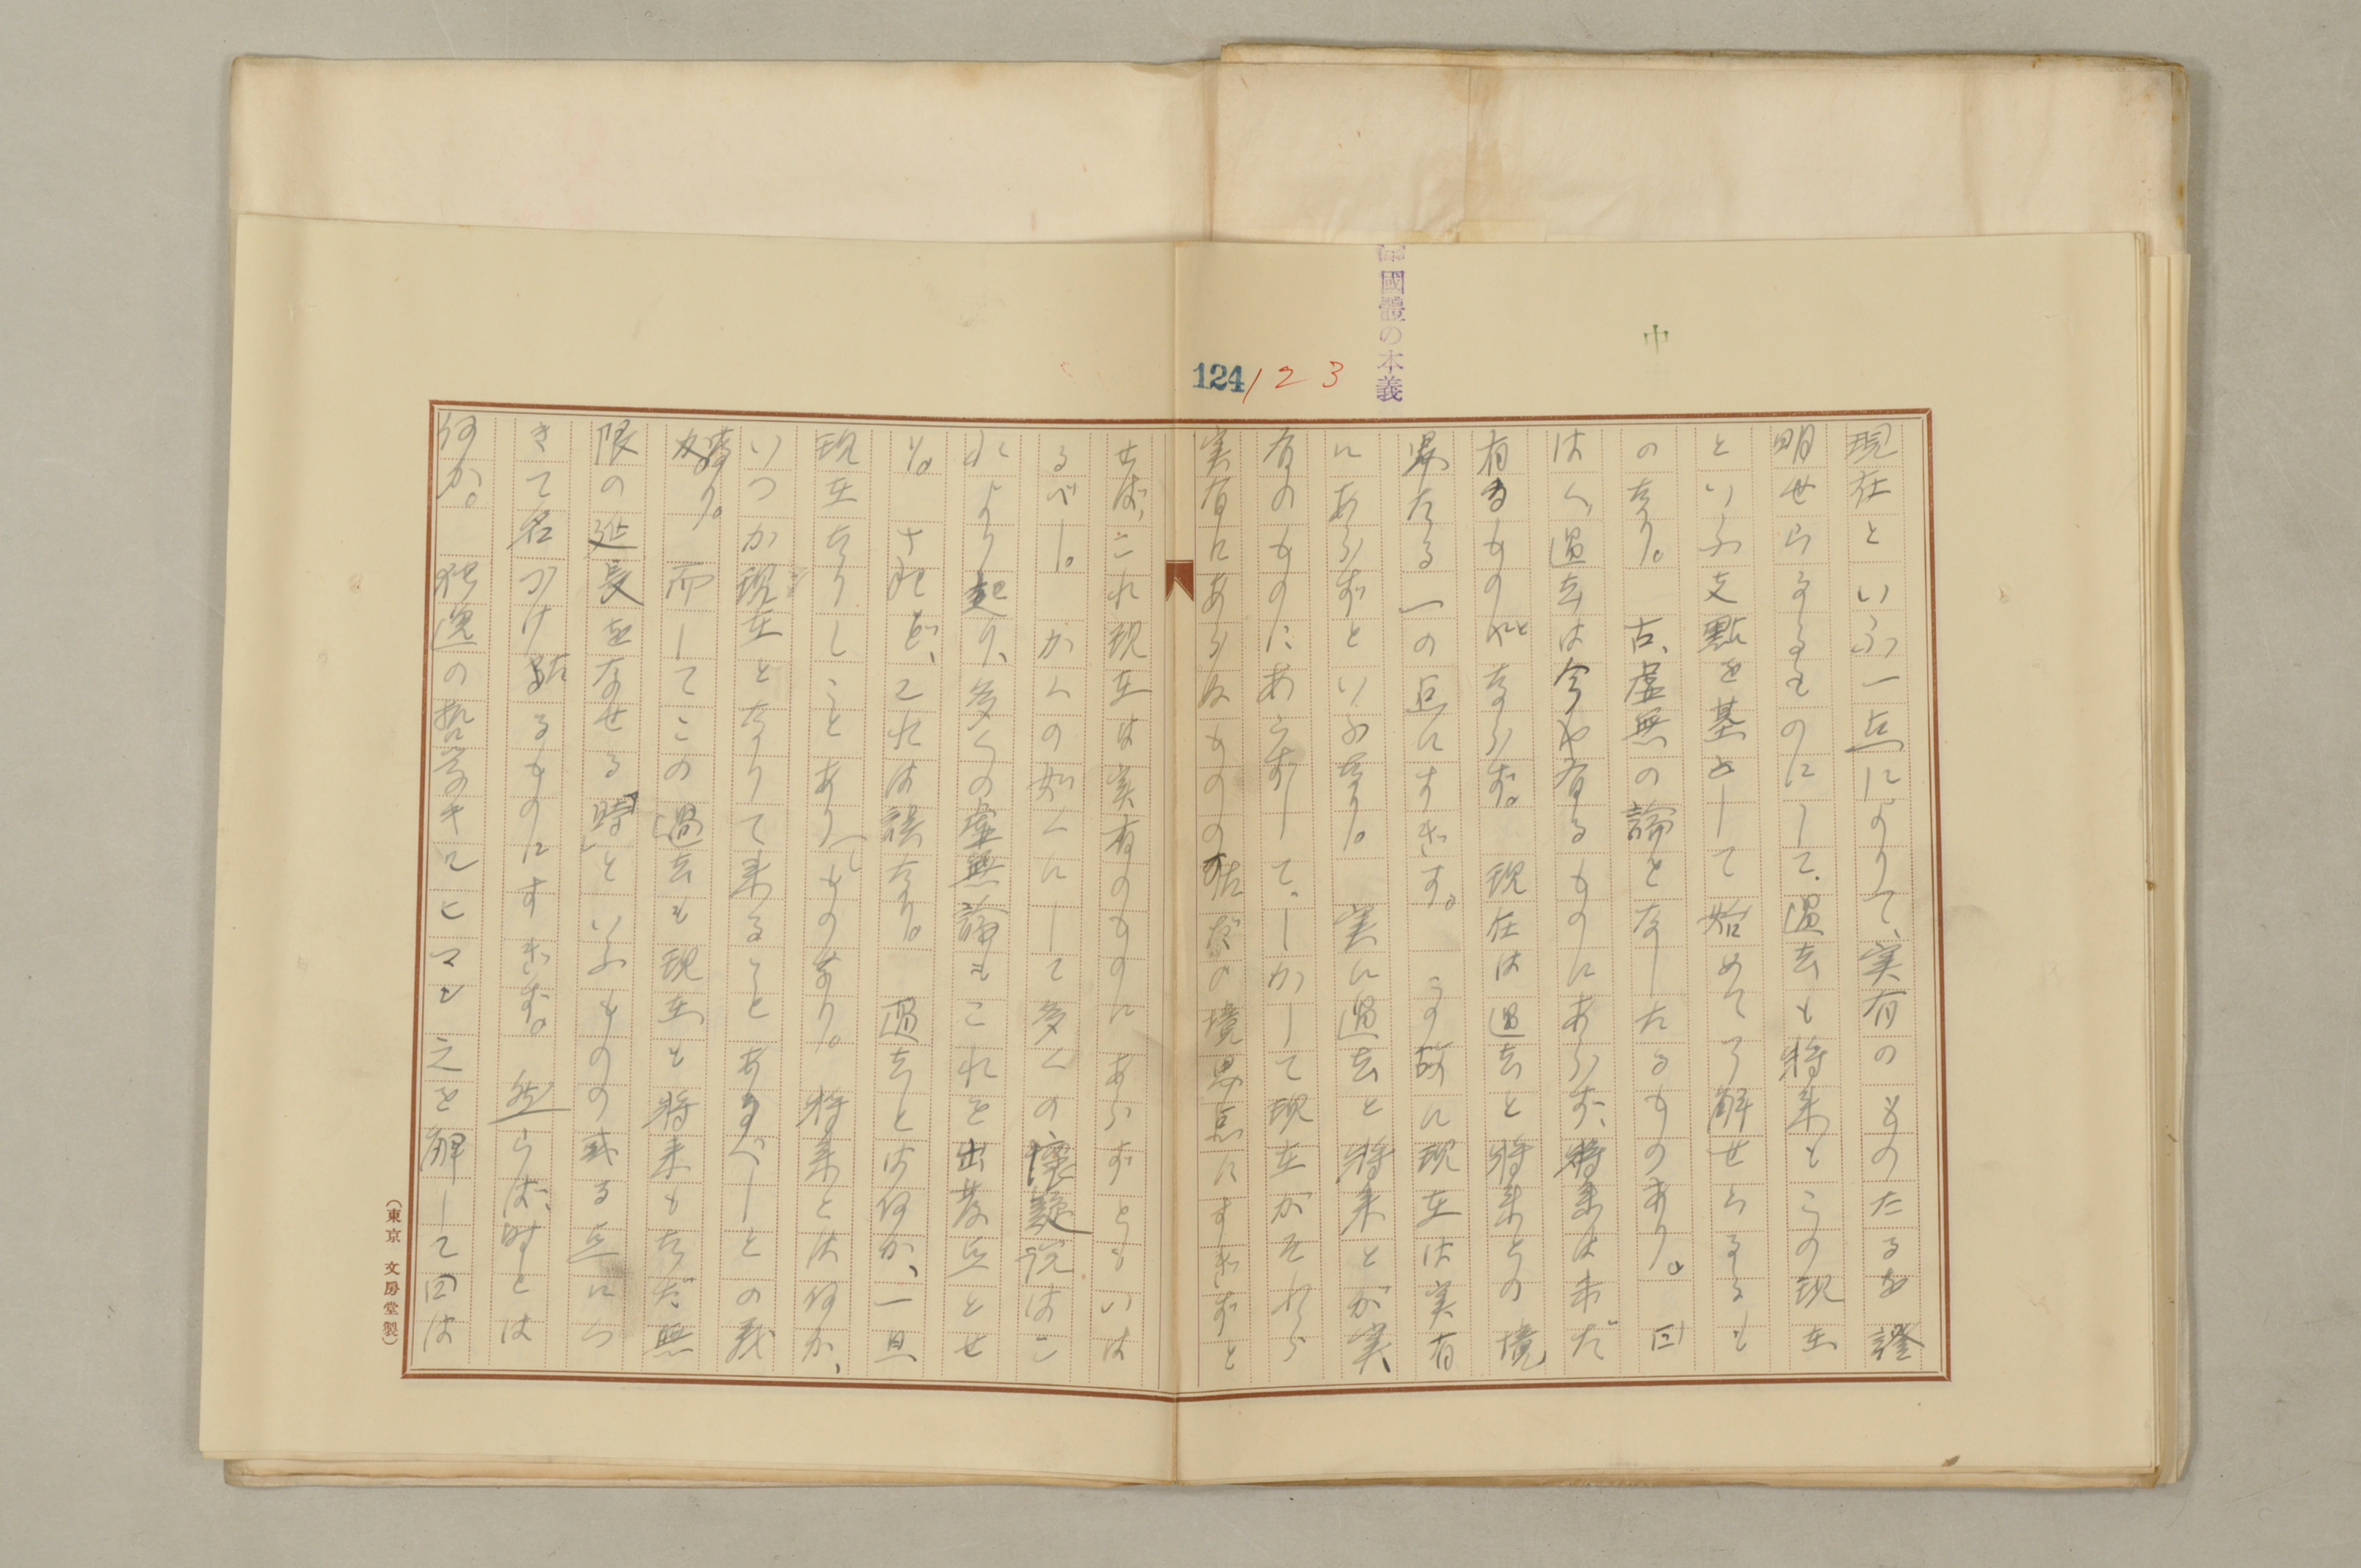 國體の本義
中
124
123
現在といふ一点によりて、実有のものたるを證
明せらるるものにして、過去も将来もこの現在
といふ支點を基として始めて了解せらるるも
のなり。古、虚無の論をなしたるものあり。曰
はく、過去は今や有るものにあらず、将来は未だ
有るものとならず。現在は過去と将来との境
界たる一の点にすぎず。この故に現在は実有
にあらずといふなり。実に過去と将来とが実
有のものにあらずして、しかして現在がそれら
実有にあらぬものの境界点にすぎずと
せば、これ現在は実有のものにあらずともいは
るべし。かくの如くにして多くの懐疑説はこ
れより起り、多くの虚無論もこれを出発点とせ
り。されど、これは誤なり。過去とは何か、一旦
現在なりしことありしものなり。将来とは何か、
いつか現在となりて来ることあるべしとの義
なり。而してこの過去も現在も将来もただ無
限の延長をなせる「時」といふものの或る点につ
きて名づけたるものにすぎず。然らば、時とは
何か。独逸の哲学者ヘヒマン之を解して曰は
(東京 文房堂製)